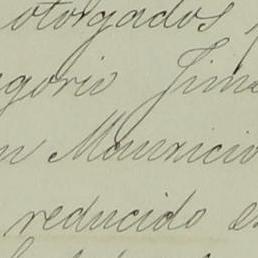 otorgados
gorio Jim
n Mauricio
reducido e